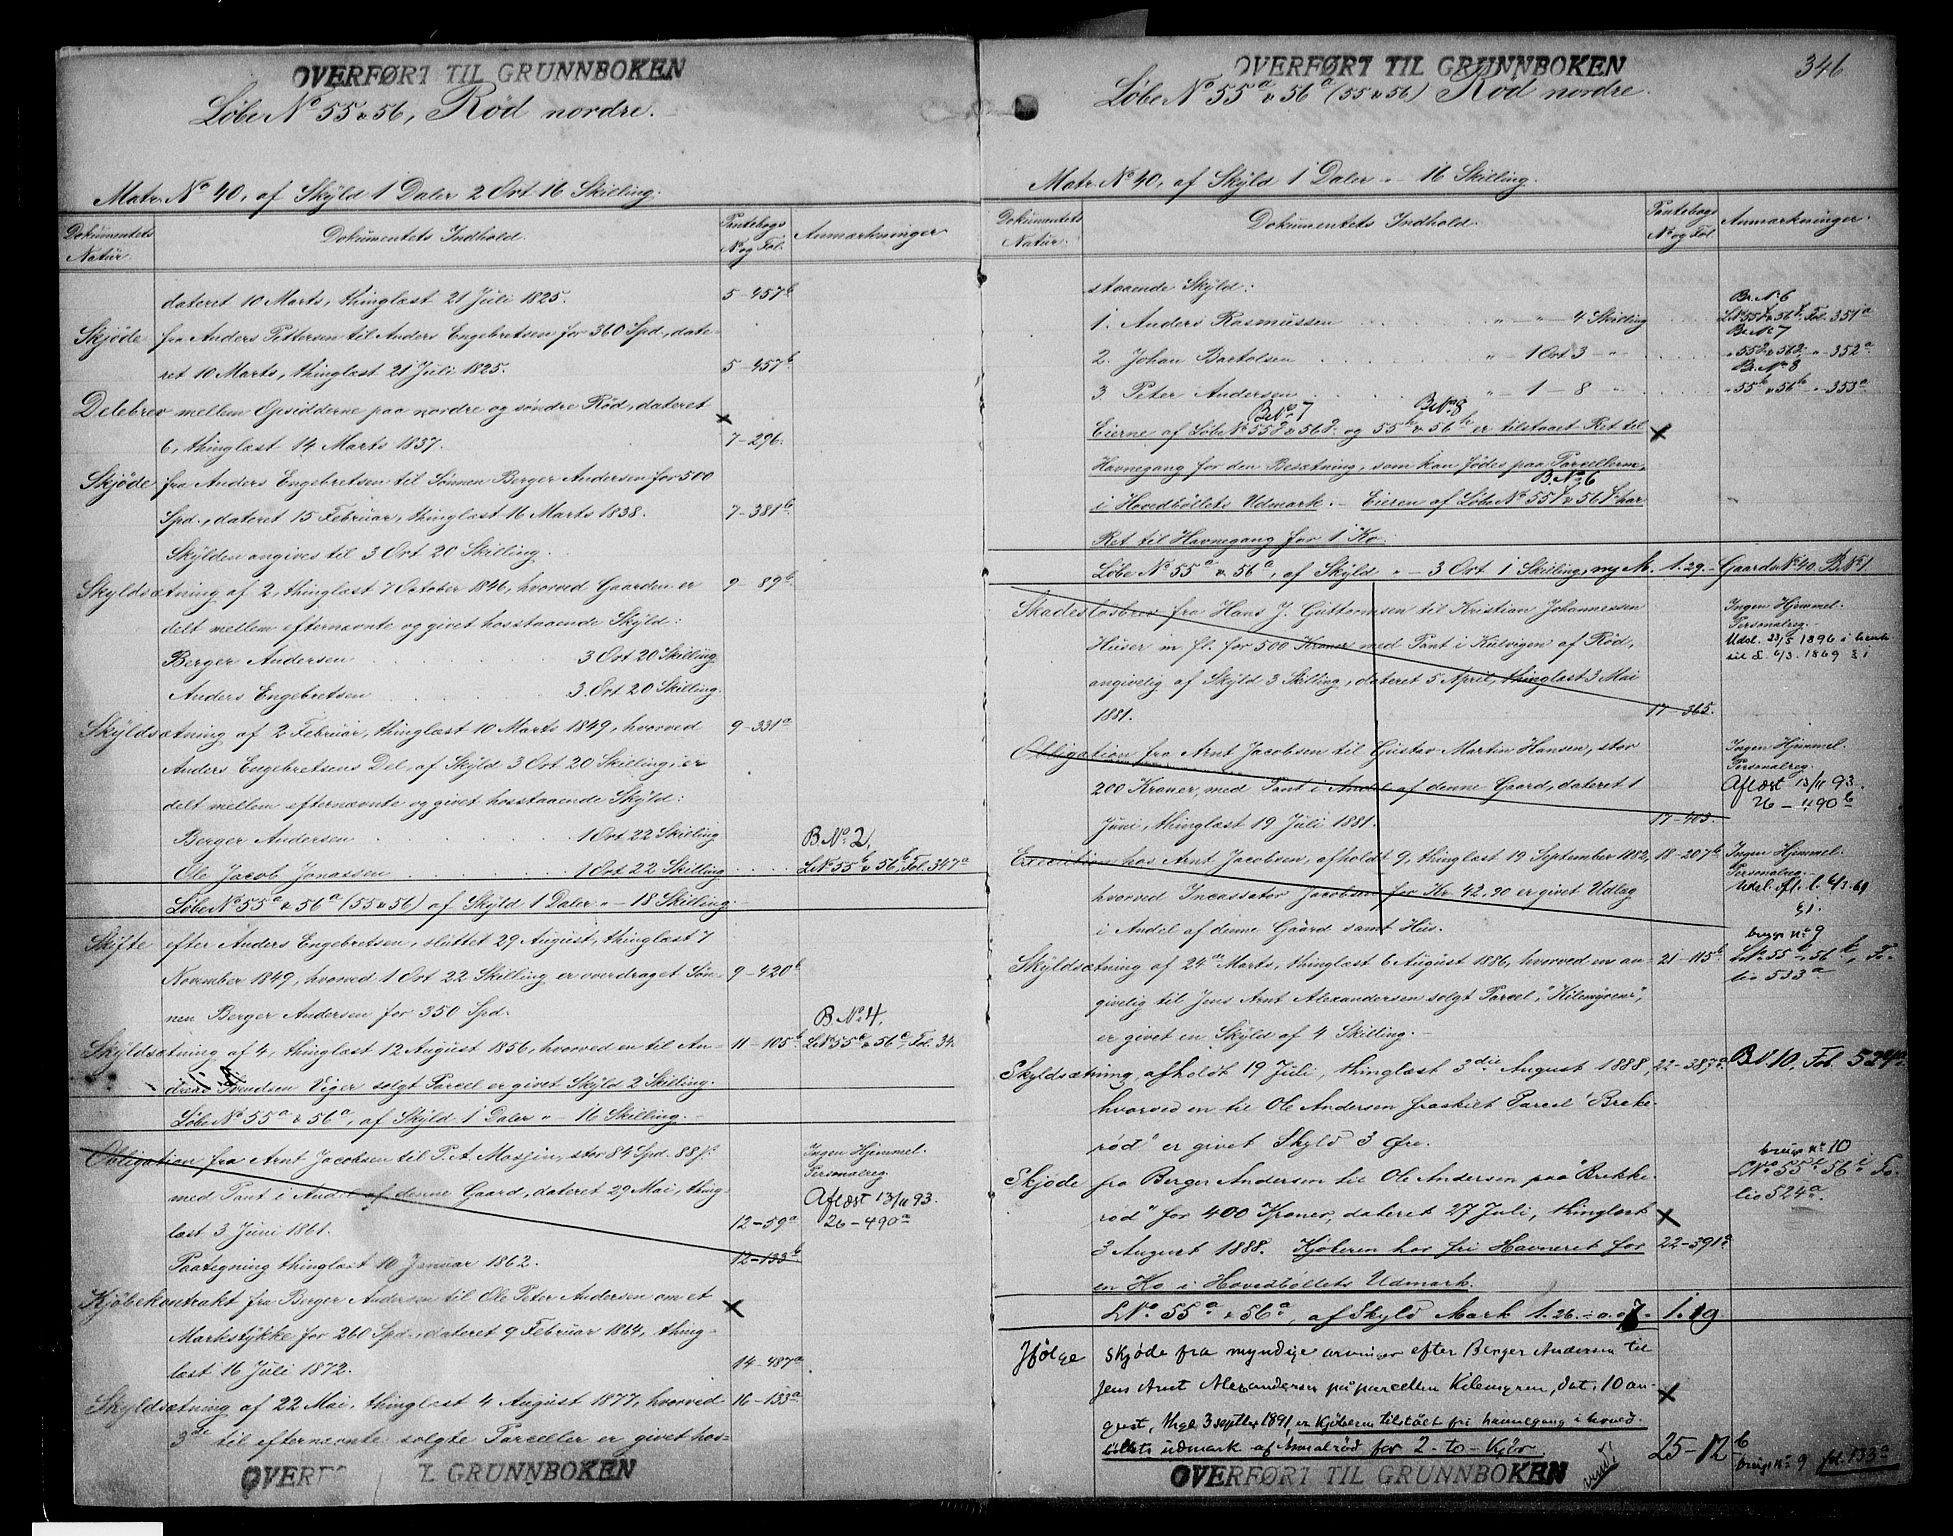 OVERFØRT TIL GRUNNBOKEN
Løbe No 55 & 56, Rød nordre.
Matr. No 40, af Skyld 1 Daler 2 Ort 16 Skilling.
Dokumentets Natur. Dokumentets Indhold. Pantebogs No og Fol. Anmærkninger
dateret 10 Marts, thinglæst 21 Juli 1825. 5-457b
Skjøde fra Anders Pettersen til Anders Engebretsen for 360 Spd., date-
ret 10 Marts, thinglæst 21 Juli 1825. 5-457b
Delebrev mellem Opsidderne paa nordre og søndre Rød, dateret
6, thinglæst 14 Marts 1837. 7-296.
Skjøde fra Anders Engebretsen til Sønnen Berger Andersen for 500
Spd., dateret 15 Februar, thinglæst 16 Marts 1838. 7-381b
Skylden angives til 3 Ort 20 Skilling.
Skyldsætning af 2, thinglæst 7 October 1846, hvorved Gaarden er 9-89b
delt mellem efternævnte og givet hosstaaende Skyld:
Berger Andersen 3 Ort 20 Skilling
Anders Engebretsen 3 Ort 20 Skilling.
Skyldsætning af 2 Februar, thinglæst 10 Marts 1849, hvorved 9-331a
Anders Engebretsens Del, af Skyld 3 Ort 20 Skilling, er
delt mellem efternævnte og givet hosstaaende Skyld:
Berger Andersen 1 Ort 22 Skilling B No 2,
Ole Jacob Jonassen 1 Ort 22 Skilling LNo 55b & 56b, Fol. 347a
Løbe No 55a & 56a (55 & 56) af Skyld 1 Daler " - 18 Skilling.
Skifte efter Anders Engebretsen, sluttet 29 August, thinglæst 7
November 1849, hvorved 1 Ort 22 Skilling er overdraget Søn- 9-420b
nen Berger Andersen for 350 Spd. B No 4,
Skyldsætning af 4, thinglæst 12 August 1856, hvorved en til An- 11-105b
dreas Svendsen Viger solgt Parcel er givet Skyld 2 Skilling.
Løbe No 55a & 56a, af Skyld 1 Daler " - 16 Skilling.
Obligation fra Arnt Jacobsen til P. A. stor 84 Spd. 88 s. Ingen Hjemmel.
med Pant i Andel af denne Gaard, dateret 29 Mai, thing- Personalreg.
læst 3 Juni 1861. 12-59a Aflæst 13/11 93. 26-490a
Paategning thinglæst 10 Januar 1862. 12-133b
Kjøbekontrakt fra Berger Andersen til Ole Peter Andersen om et
Markstykke for 260 Spd., dateret 9 Februar 1864, thing-
læst 16 Juli 1872. 14-487a
Skyldsætning af 22 Mai, thinglæst 4 August 1877, hvorved 16-133a
3de til efternævnte solgte Parceller er givet hos-
GRUNNBOKEN
OVERFØRT TIL GRUNNBOKEN 346
Løbe No 55a & 56a (55 & 56) Rød nordre.
Matr. No 40, af Skyld 1 Daler " - 16 Skilling.
Dokumentets Natur. Dokumentets Indhold. Pantebogs No og Fol. Anmærkninger.
staaende Skyld: Br. No 6
1. Anders Rasmussen " - " - 4 Skilling Fol. 351a
Br. No 7
2. Johan Bartolsen " - 1 Ort 3 - " 352a
Br. No 8
3. Peter Andersen " - 1 - 8 - " " 55h & 56h " - 353a
B No 7 B No 8
Eierne af Løbe No 55g & 56g og 55h & 56h er tilstaaet Ret til
Havnegang for den Besætning, som kan fødes paa Parcellerne,
B No 6
i Hovedbøllets Udmark. - Eieren af Løbe No 55f & 56f har
Ret til Havnegang for 1 Ko.
Løbe No 55a & 56a, af Skyld " - 3 Ort 1 Skilling, ny M. 1.29. - Gaards No 40, B. No 1.
Skadesløsbrev fra Hans J. Guttormsen til Kristian Johannessen Ingen Hjemmel.
Huser m fl. for 500 Kroner med Pant i Kilvigen af Rød, Personalreg.
angivelig af Skyld 3 Skilling, dateret 5 April, thinglæst 3 Mai
1881. 17-365.
Obligation fra Arnt Jacobsen til Gustav Martin Hansen, stor Ingen Hjemmel.
200 Kroner, med Pant i Andel af denne Gaard, dateret 1 Personalreg.
Juni, thinglæst 19 Juli 1881. 17-403. Aflæst 13/11 93. 26-490b
Execution hos Arnt Jacobsen, afholdt 9, thinglæst 19 September 1882, 18-207b Ingen Hjemmel.
hvorved Incassator Jacobsen for Kr. 42,20 er givet Udlæg Personalreg.
i Andel af denne Gaard samt Hus. Udsl. efl. l. 6/3. 69 § 1.
brugs no 9
Skyldsætning af 24de Marts, thinglæst 6 August 1886, hvorved en an- 21-115b
givelig til Jens Arnt Alexandersen solgt Parcel, "Kilemyrene", lio 533a
er givet en Skyld af 4 Skilling. -
Skyldsætning, afholdt 19 Juli, thinglæst 3die August 1888, 22-387a B No 10, Fol. 524a
hvorved en til Ole Andersen fraskilt Parcel "Brekke-
rød" er givet Skyld 3 Øre. brugs no 10
Skjøde fra Berger Andersen til Ole Andersen paa "Brekke- LNo 55i 56i Fo-
rød" for 400 Kroner, dateret 27 Juli, thinglæst lio 524a.
3 August 1888. Kjøberen har fri Havneret for 22-391a
en Ko i Hovedbøllets Udmark.
LNo 55a & 56a, af Skyld Mark 1.26. ÷ 0.07. 1.19.
Ifølge skjøde fra myndige arvinger efter Berger Andersen til
Jens Arnt Alexandersen på parcellen Kilemyren, dat. 10 au-
gust, thgl. 3 septbr 1891, er kjøberen tilstået fri havnegang i hoved-
bøllets udmark af for 2 - to - kjør. 25-12b
brugs no 9 fol. 533a
OVERFØRT TIL GRUNNBOKEN